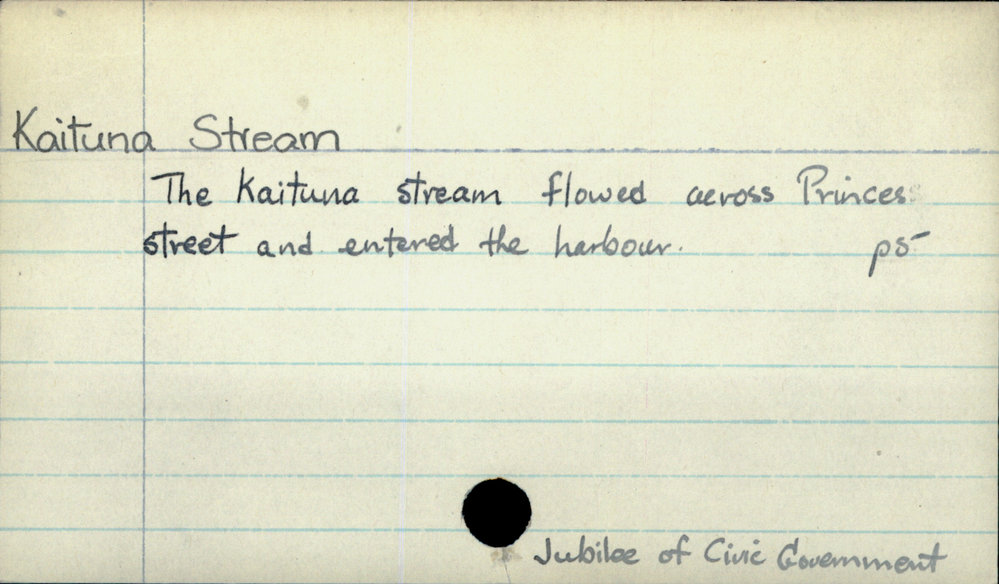 Kaituna Stream
The Kaituna stream flowed across Princes
street and entered the harbour. p5
Jubilee of Civic Government